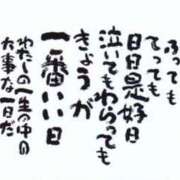 ふっても
てっても
日日是好日
泣いてもわらっても
きょうが
一番いい日
わたしの一生の中の
大事な一日だ